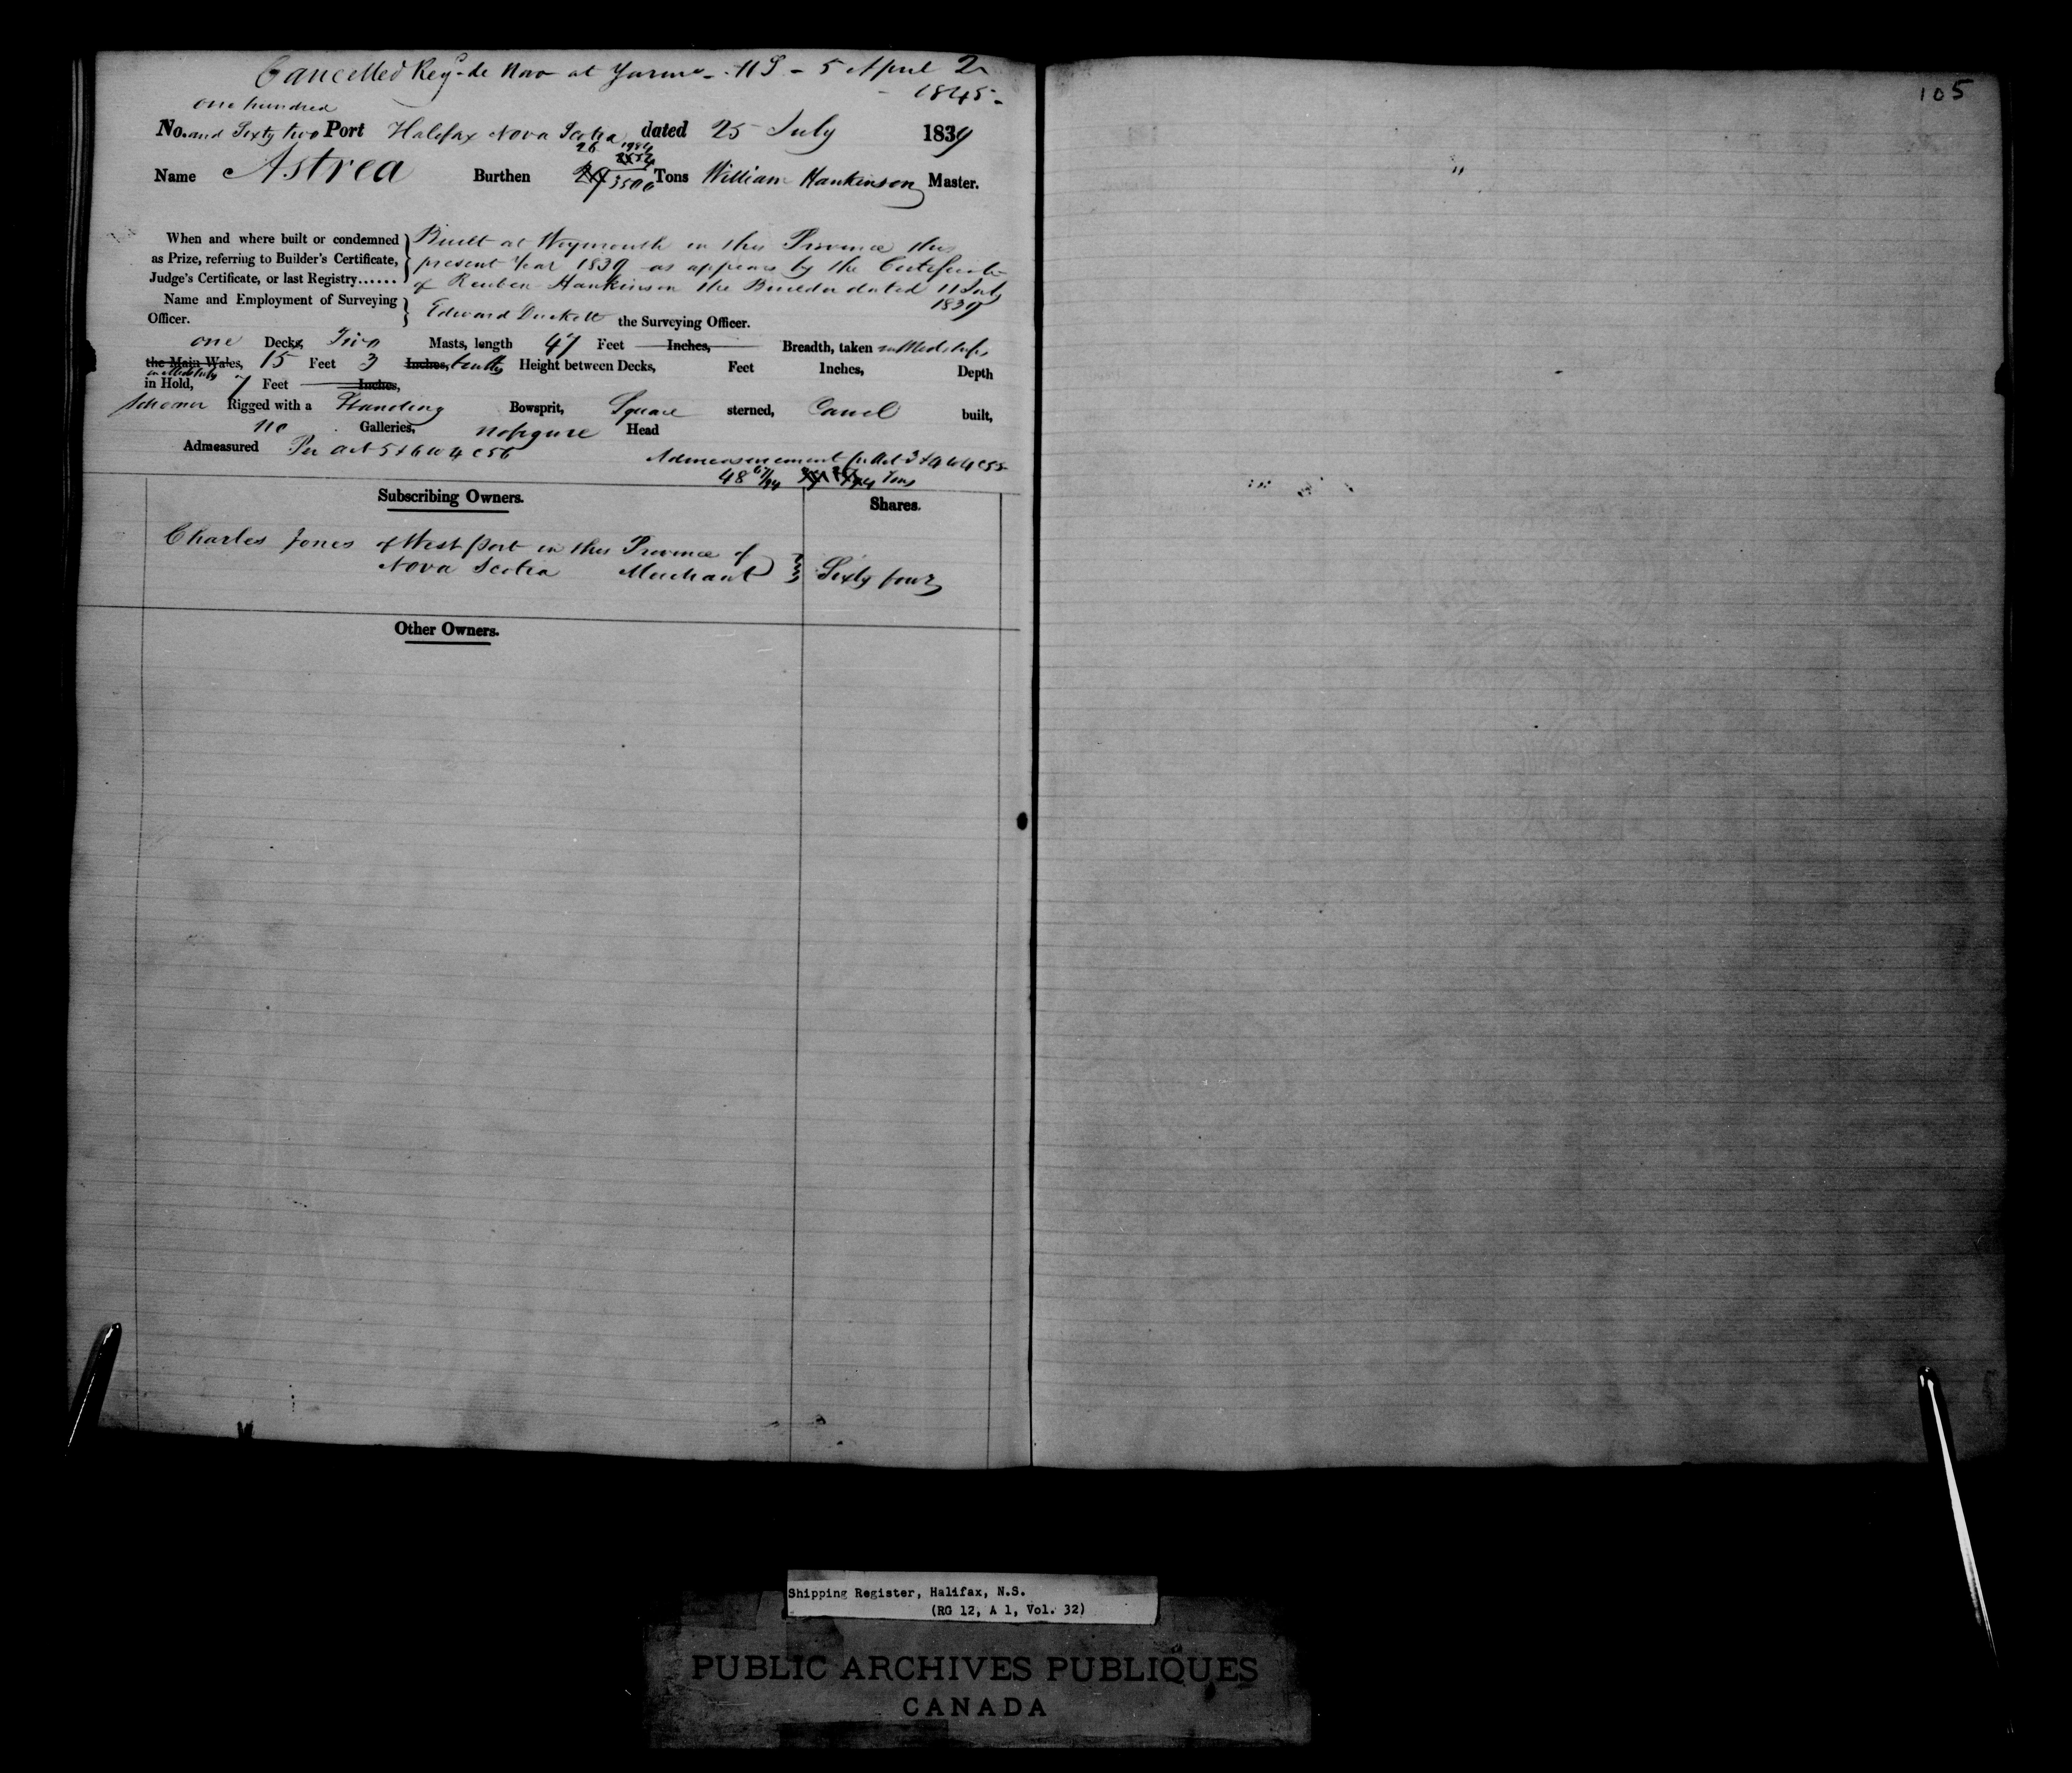 Cancelled Reg.d de Novo at Yarmo - N S - 5 April
1845 -
105
one hundred
No. and Sixty two Port Halifax Nova Scotia dated 25 July 1839
26 1984
Name Astrea Burthen 3500 Tons William Hankinson Master.
When and where built or condemned
as Prize, referring to Builder's Certificate,
Judge's Certificate, or last Registry......
Built at Weymouth in this Province this
present Year 1839 as appears by the Certificate
of Reuben Hankinson the Builder dated 11 July
1839
Name and Employment of Surveying
Officer.
Edward Duckett the Surveying Officer.
one Decks, Two Masts, length 47 Feet Inches, Breadth, taken in Midships
the Main Wales, 15 Feet 3 Inches, tenths Height between Decks, Feet Inches, Depth
in Midships
in Hold, 7 Feet Inches,
Schooner Rigged with a Standing Bowsprit, Square sterned, Carvel built,
no Galleries, no figure Head
Admeasured Per Act 5 & 6 W 4 C 56
Admeasurement pr Act 3 & 4 W 4 C 55
48 67/94 Tons
Subscribing Owners.
Shares.
Charles Jones of West port in this Province of
Nova Scotia Merchant
Sixty four
Other Owners.
Shipping Register, Halifax, N.S.
(RG 12, A 1, Vol. 32)
PUBLIC ARCHIVES PUBLIQUES
CANADA